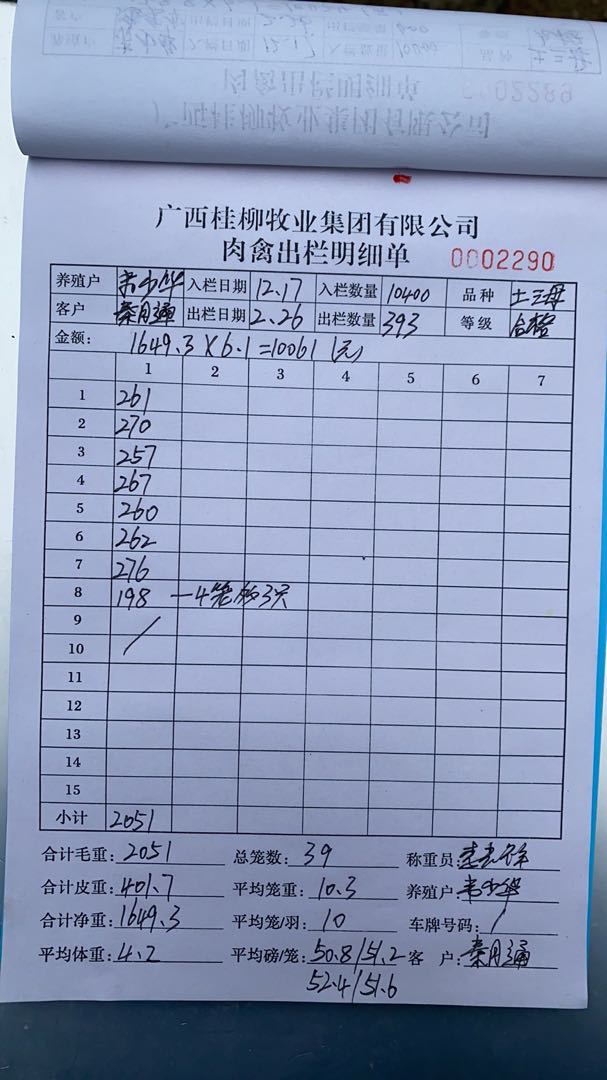 广西桂柳牧业集团有限公司
肉禽出栏明细单 0002290
养殖户 入栏日期 12.17 入栏数量 10400 品种 土三母
客户 秦月通 出栏日期 2.26 出栏数量 393 等级 合格
金额: 1649.3×6.1=10061(元)
1 2 3 4 5 6 7
1 261
2 270
3 257
4 267
5 260
6 262
7 276
8 198 一4笼 3只
9
10 /
11
12
13
14
15
小计 2051
合计毛重: 2051 总笼数: 39 称重员:
合计皮重: 401.7 平均笼重: 10.3 养殖户:
合计净重: 1649.3 平均笼/羽: 10 车牌号码: /
平均体重: 4.2 平均磅/笼: 50.8/51.2 客 户: 秦月通
52.4/51.6